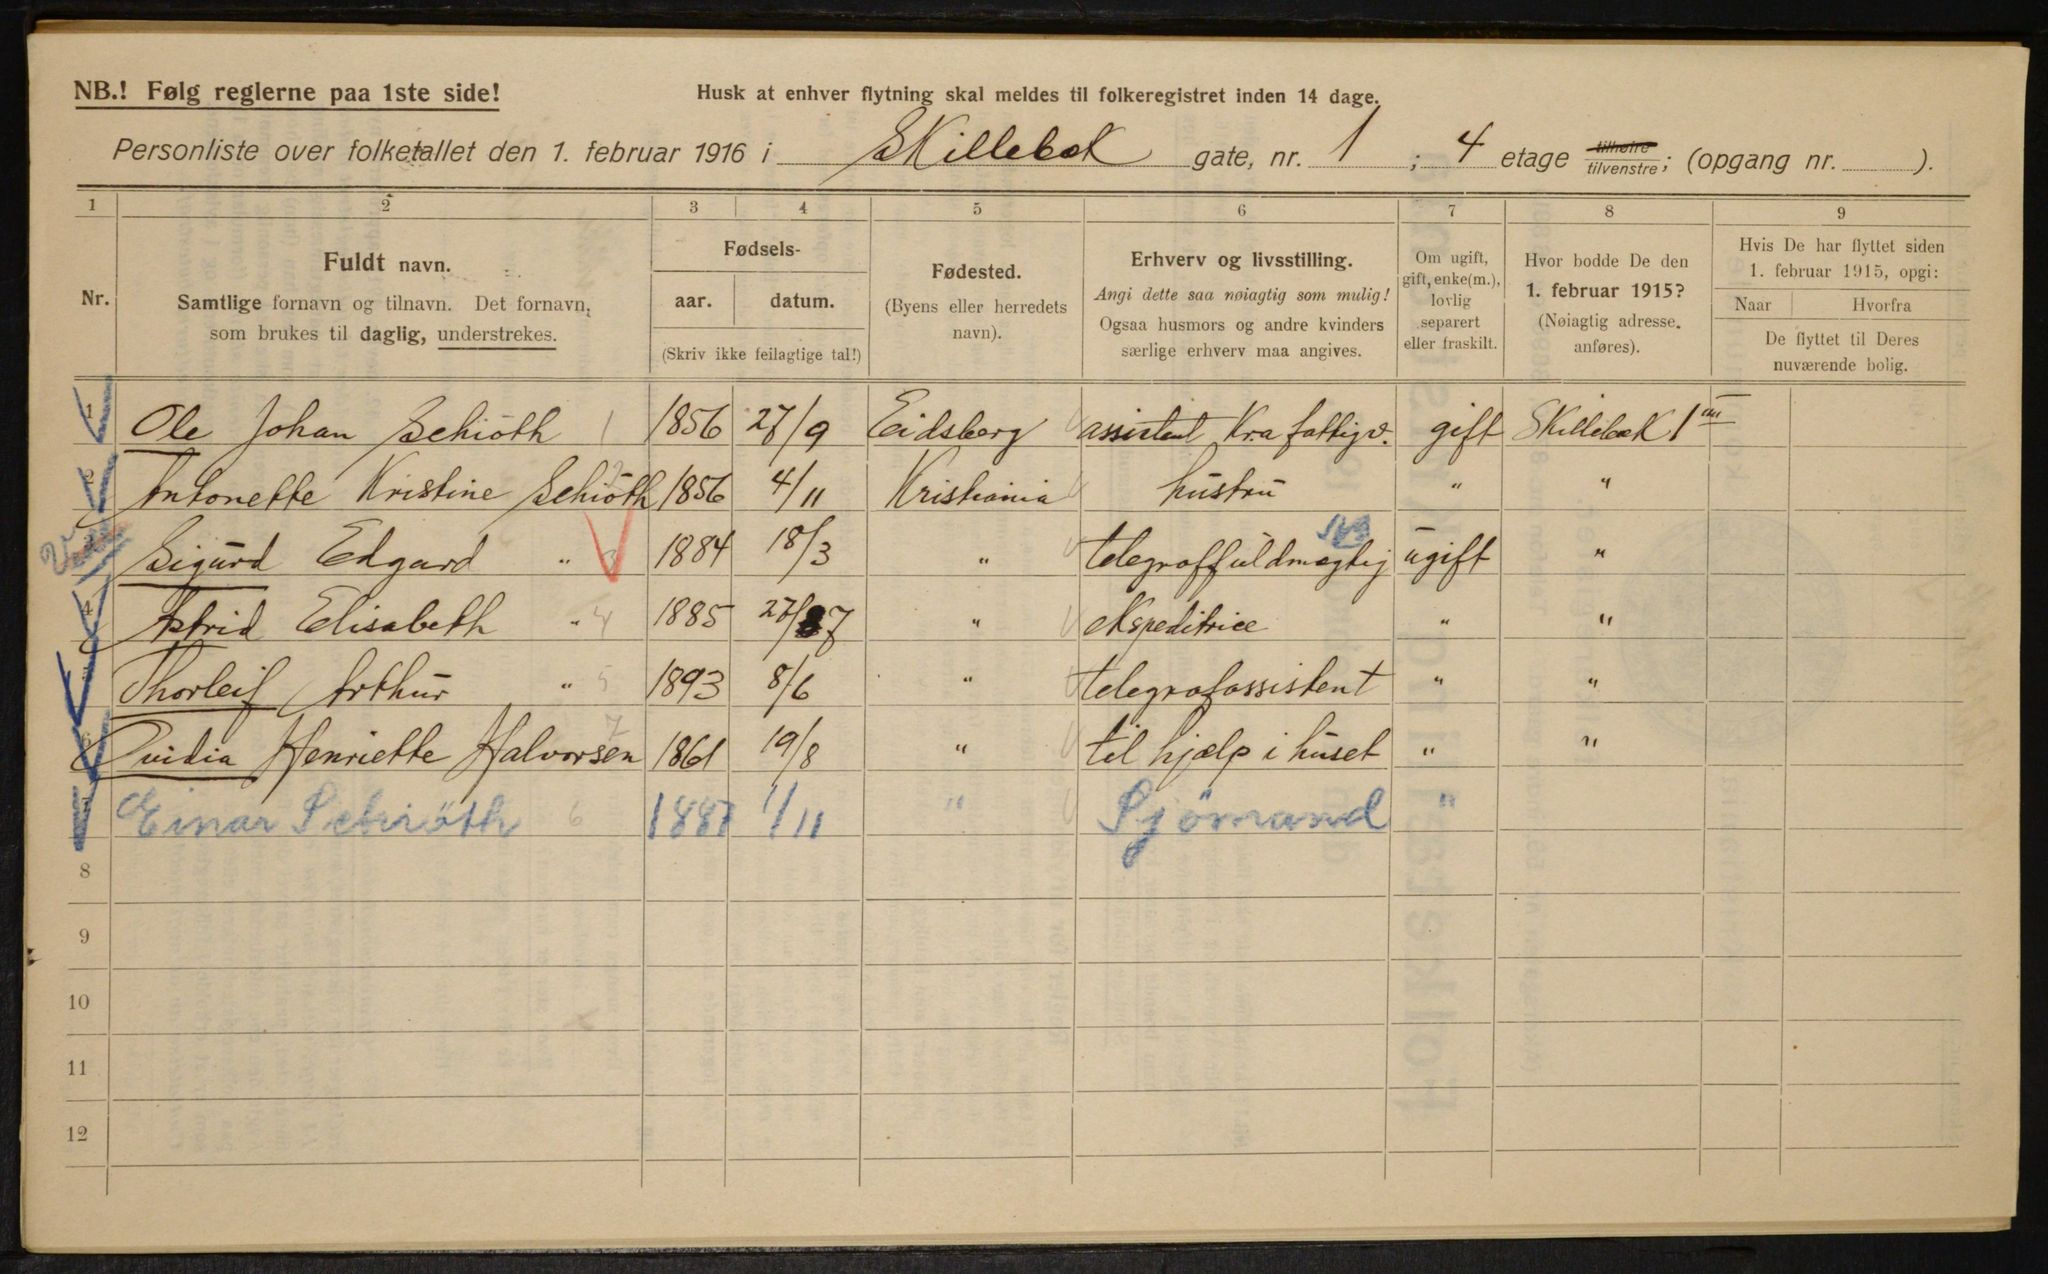 NB.! Følg reglerne paa 1ste side!
Husk at enhver flytning skal meldes til folkeregistret inden 14 dage.
Personliste over folketallet den 1. februar 1916 i Skillebek gate, nr. 1 ; 4 etage tilhøire/tilvenstre; (opgang nr. ).
1 2 3 4 5 6 7 8 9
Nr.
Fuldt navn.
Samtlige fornavn og tilnavn. Det fornavn,
som brukes til daglig, understrekes.
Fødsels-
aar. datum.
(Skriv ikke feilagtige tal!)
Fødested.
(Byens eller herredets
navn).
Erhverv og livsstilling.
Angi dette saa nøiagtig som mulig!
Ogsaa husmors og andre kvinders
særlige erhverv maa angives.
Om ugift,
gift, enke(m.),
lovlig
separert
eller fraskilt.
Hvor bodde De den
1. februar 1915?
(Nøiagtig adresse
anføres).
Hvis De har flyttet siden
1. februar 1915, opgi:
Naar Hvorfra
De flyttet til Deres
nuværende bolig.
1 Ole Johan Schiöth 1 1856 27/9 Eidsberg assistent Kra fattigv. gift Skillebek 1
2 Antonette Kristine Schiöth 2 1856 4/11 Kristiania hustru " "
3 Sigurd Edgard " 3 1884 18/3 " telegraffuldmægtig ugift "
4 Astrid Elisabeth " 4 1885 27/7 " ekspeditrice " "
5 Thorleif Arthur " 5 1893 8/6 " telegrafassistent " "
6 Ovidia Henriette Halvorsen 7 1861 19/8 " til hjælp i huset " "
7 Einar Schiöth 6 1887 1/11 " Sjömand "
8
9
10
11
12